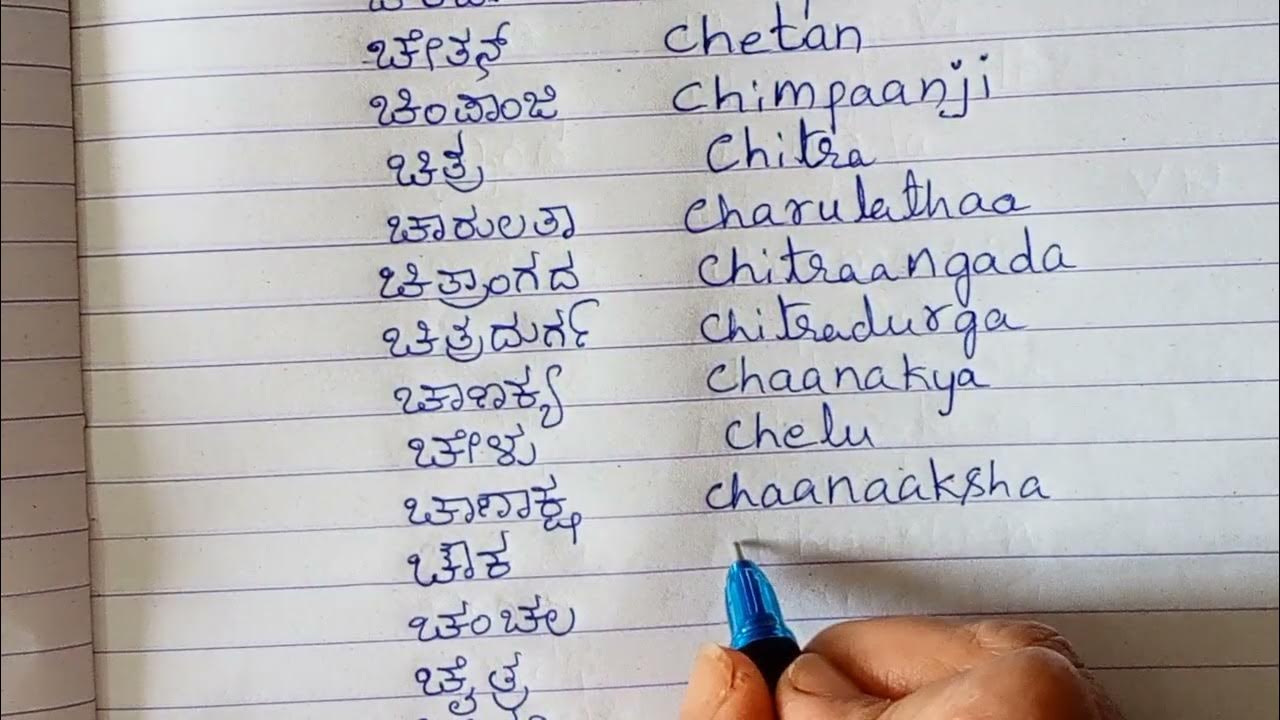 ಚೇತನ್ Chetan
ಚಿಂಪಾಂಜಿ Chimpaanji
ಚಿತ್ರ Chitra
ಚಾರುಲತಾ Charulathaa
ಚಿತ್ರಾಂಗದ Chitraangada
ಚಿತ್ರದುರ್ಗ Chitradurga
ಚಾಣಕ್ಯ Chaanakya
ಚೇಳು Chelu
ಚಾಣಾಕ್ಷ Chaanaaksha
ಚೌಕ
ಚಂಚಲ
ಚೈತ್ರ